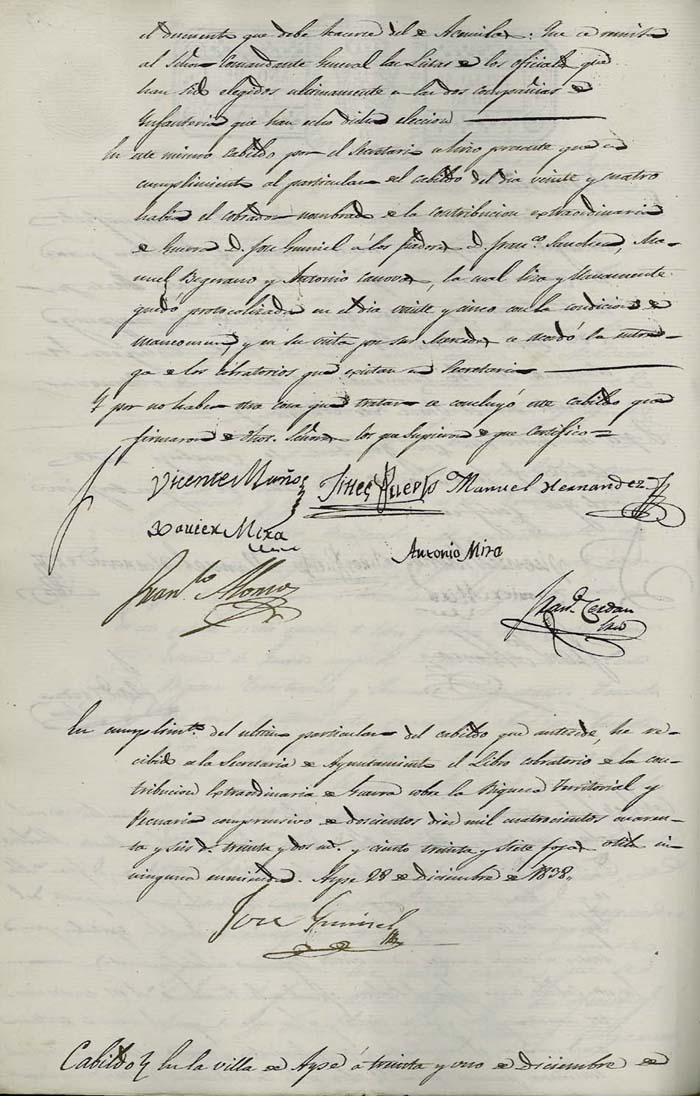 el documento que debe hacerse del de Que se remita
al Señor Comandante General las Listas de los oficiales que
han sido elegidos ultimamente en las dos compañias de
Infanteria que han echo dicha eleccion
En este mismo Cabildo por el Secretario se hizo presente que en
cumplimiento al particular del cabildo del dia veinte y cuatro
habia el cobrador nombrado de la contribucion extraordinaria
de Guerra D. Jose Gumiel á los fiadores D. Fran.co Sanchez, Ma-
nuel Begerano y Antonio Canovas, la cual lisa y llanamente
quedó protocolizada en el dia veinte y cinco con la condicion de
mancomun, y en su vista por sus Mercedes se acordó la entre-
ga de los libratorios que existan en Secretaria
Y por no haber otra cosa que tratar se concluyó este Cabildo que
firmaron de dhos. Señores los que supieron de que Certifico=
Vicente Muñoz Gines Puerto Manuel Hernandez
Xavier Mira
Antonio Mira
Fran.co Alonso
Fran.co Cerdan
En cumplim.to del ultimo particular del cabildo que antecede, he re-
cibido de la Secretaria de Ayuntamiento el Libro cobratorio de la con-
tribucion Extraordinaria de Guerra sobre la Riqueza Territorial y
Pecuaria comprensivo de doscientos diez mil cuatrocientos cuaren-
ta y seis r.s treinta y dos md. y ciento treinta y siete fojas utiles sin
ninguna enmienda. Aspe 28 de Diciembre de 1838.,
Jose Gumiel
Cabildo En la villa de Aspe á treinta y uno de Diciembre de